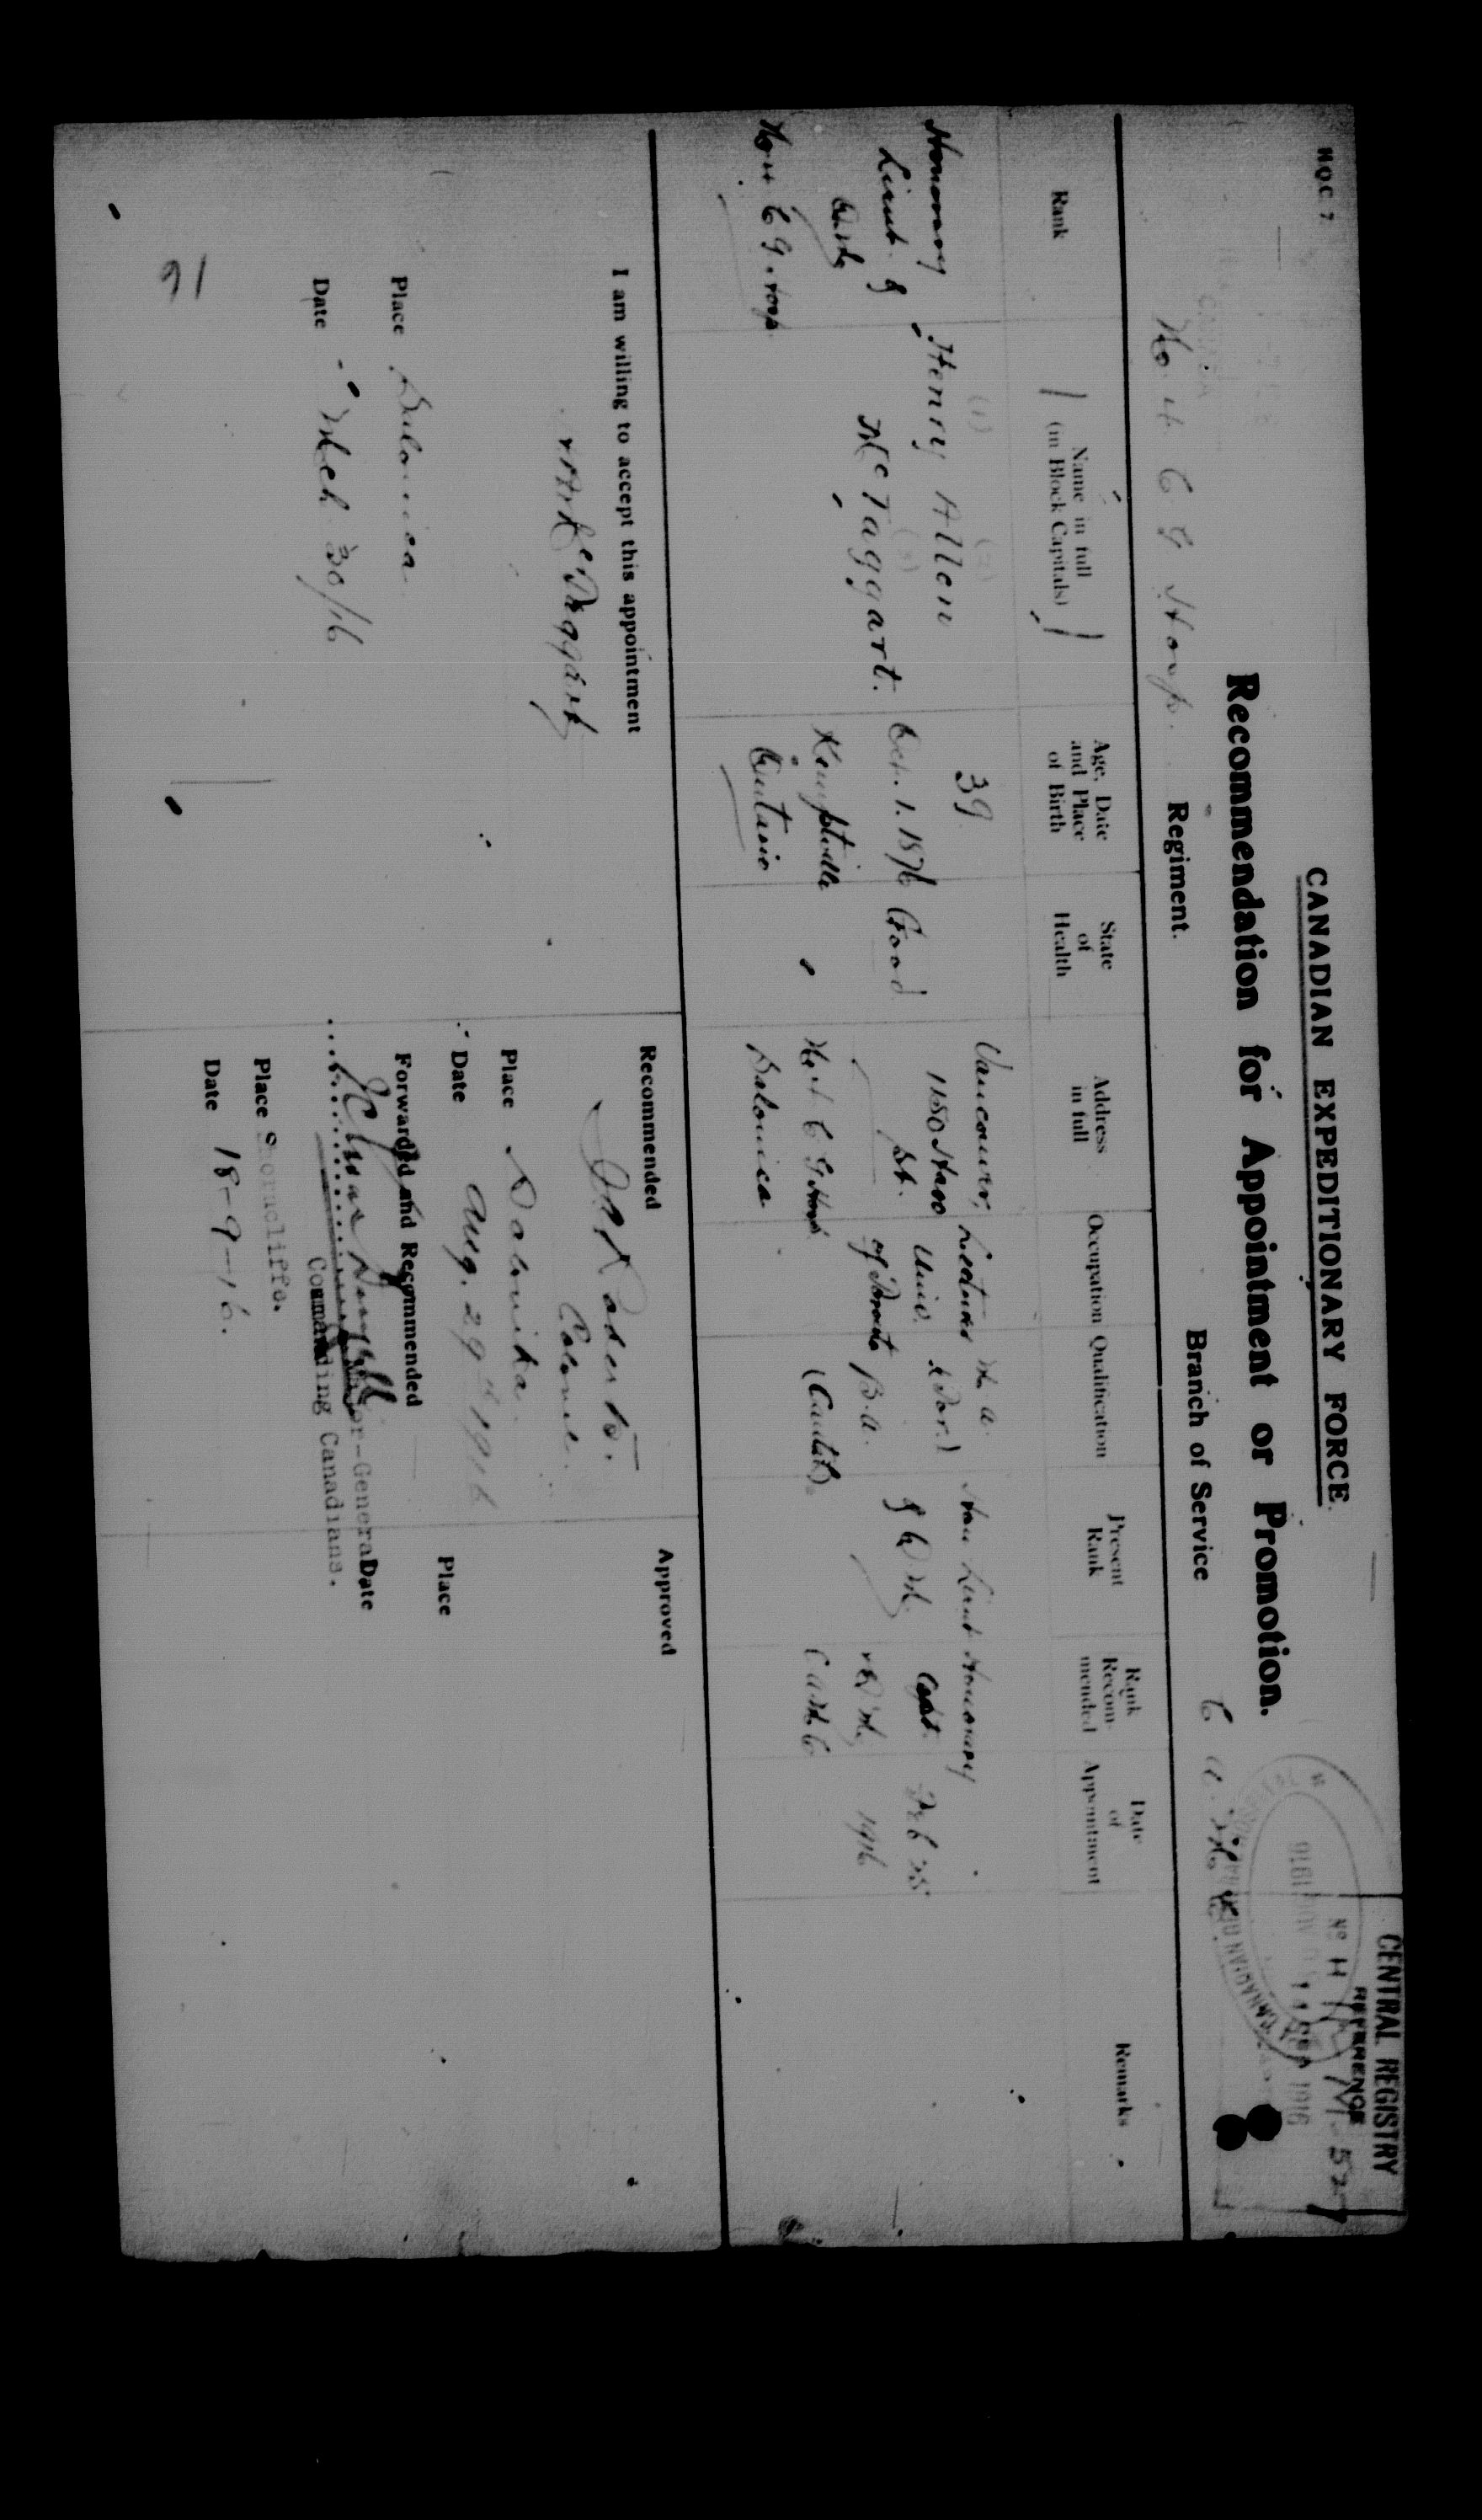 H.Q.C. 7.
CENTRAL REGISTRY
REFERENCE
CANADIAN EXPEDITIONARY FORCE.
Recommendation for Appointment or Promotion.
No 4 C G Hosp. Regiment. Branch of Service C. A. M. C.
Rank
Name in full
(in Block Capitals)
Age, Date
and Place
of Birth
State
of
Health
Address
in full
Occupation
Qualification
Present
Rank
Rank
Recom-
mended
Date
of
Appointment
Remarks
Honorary
Lieut. &
No 4 C G Hosp.
(1) (2)
Henry Allen
(3)
McTaggart.
39
Oct. 1. 1876
Kemptville
Ontario
Good
Vancouver,
1180 Haro
St.
No 4 C G Hosp.
Salonica
Lecturer
Univ.
of Toronto
M. A.
(Tor.)
B.A.
(Cantab)
Hon Lieut
& Q M.
Honorary
Capt.
& Q M.
C A M C
Feb 25
1916
I am willing to accept this appointment
McTaggart
Place Salonica
Date Mch 30/16
91
Recommended
J A Roberts.
Colonel.
Place Salonika.
Date Aug. 29th 1916
Forwarded and Recommended
Major-General
Commanding Canadians.
Place Shorncliffe.
Date 18-9-16.
Approved
Place
Date